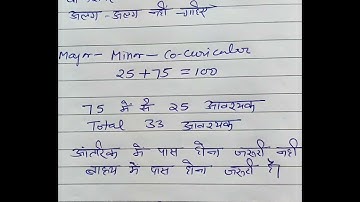 अलग-अलग की
Major - Minor - Co-curicular
25 + 75 = 100
75 में से 25 आवश्यक
Total 33 आवश्यक
आंतरिक में पास होना जरूरी नही
बाह्य में पास होना जरूरी है।